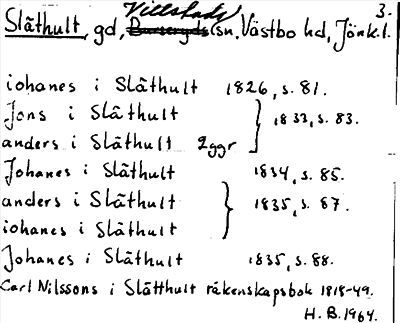 3.
Slätthult, gd, Villstads sn, Västbo hd, Jönk.l.
iohanes i Slãthult 1826, s. 81.
Jons i Slãthult
anders i Slãthult 2ggr } 1833, s. 83.
Johanes i Slãthult 1834, s. 85.
anders i Slãthult } 1835, s. 87.
iohanes i Slãthult
Johanes i Slãthult 1835, s. 88.
Carl Nilssons i Slätthult räkenskapsbok 1818-49.
H. B. 1964.